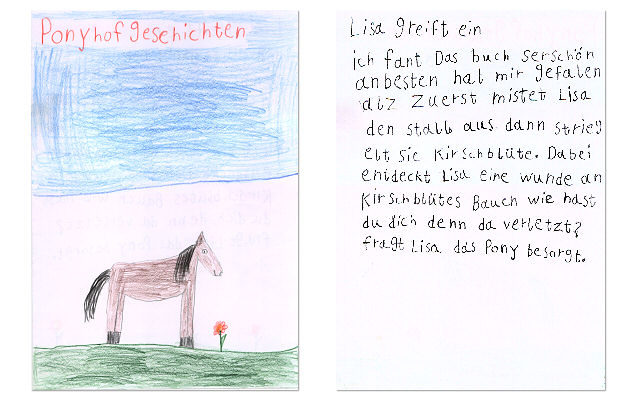 Ponyhofgeschichten
Lisa greift ein
ich fant Das buch serschön
anbesten hat mir gefalen
alz Zuerst mistet Lisa
den stall aus dann strieg
elt sie Kirschblüte. Dabei
entdeckt Lisa eine wunde an
Kirschblütes Bauch wie hast
du dich denn da verletzt?
fragt Lisa das Pony besorgt.